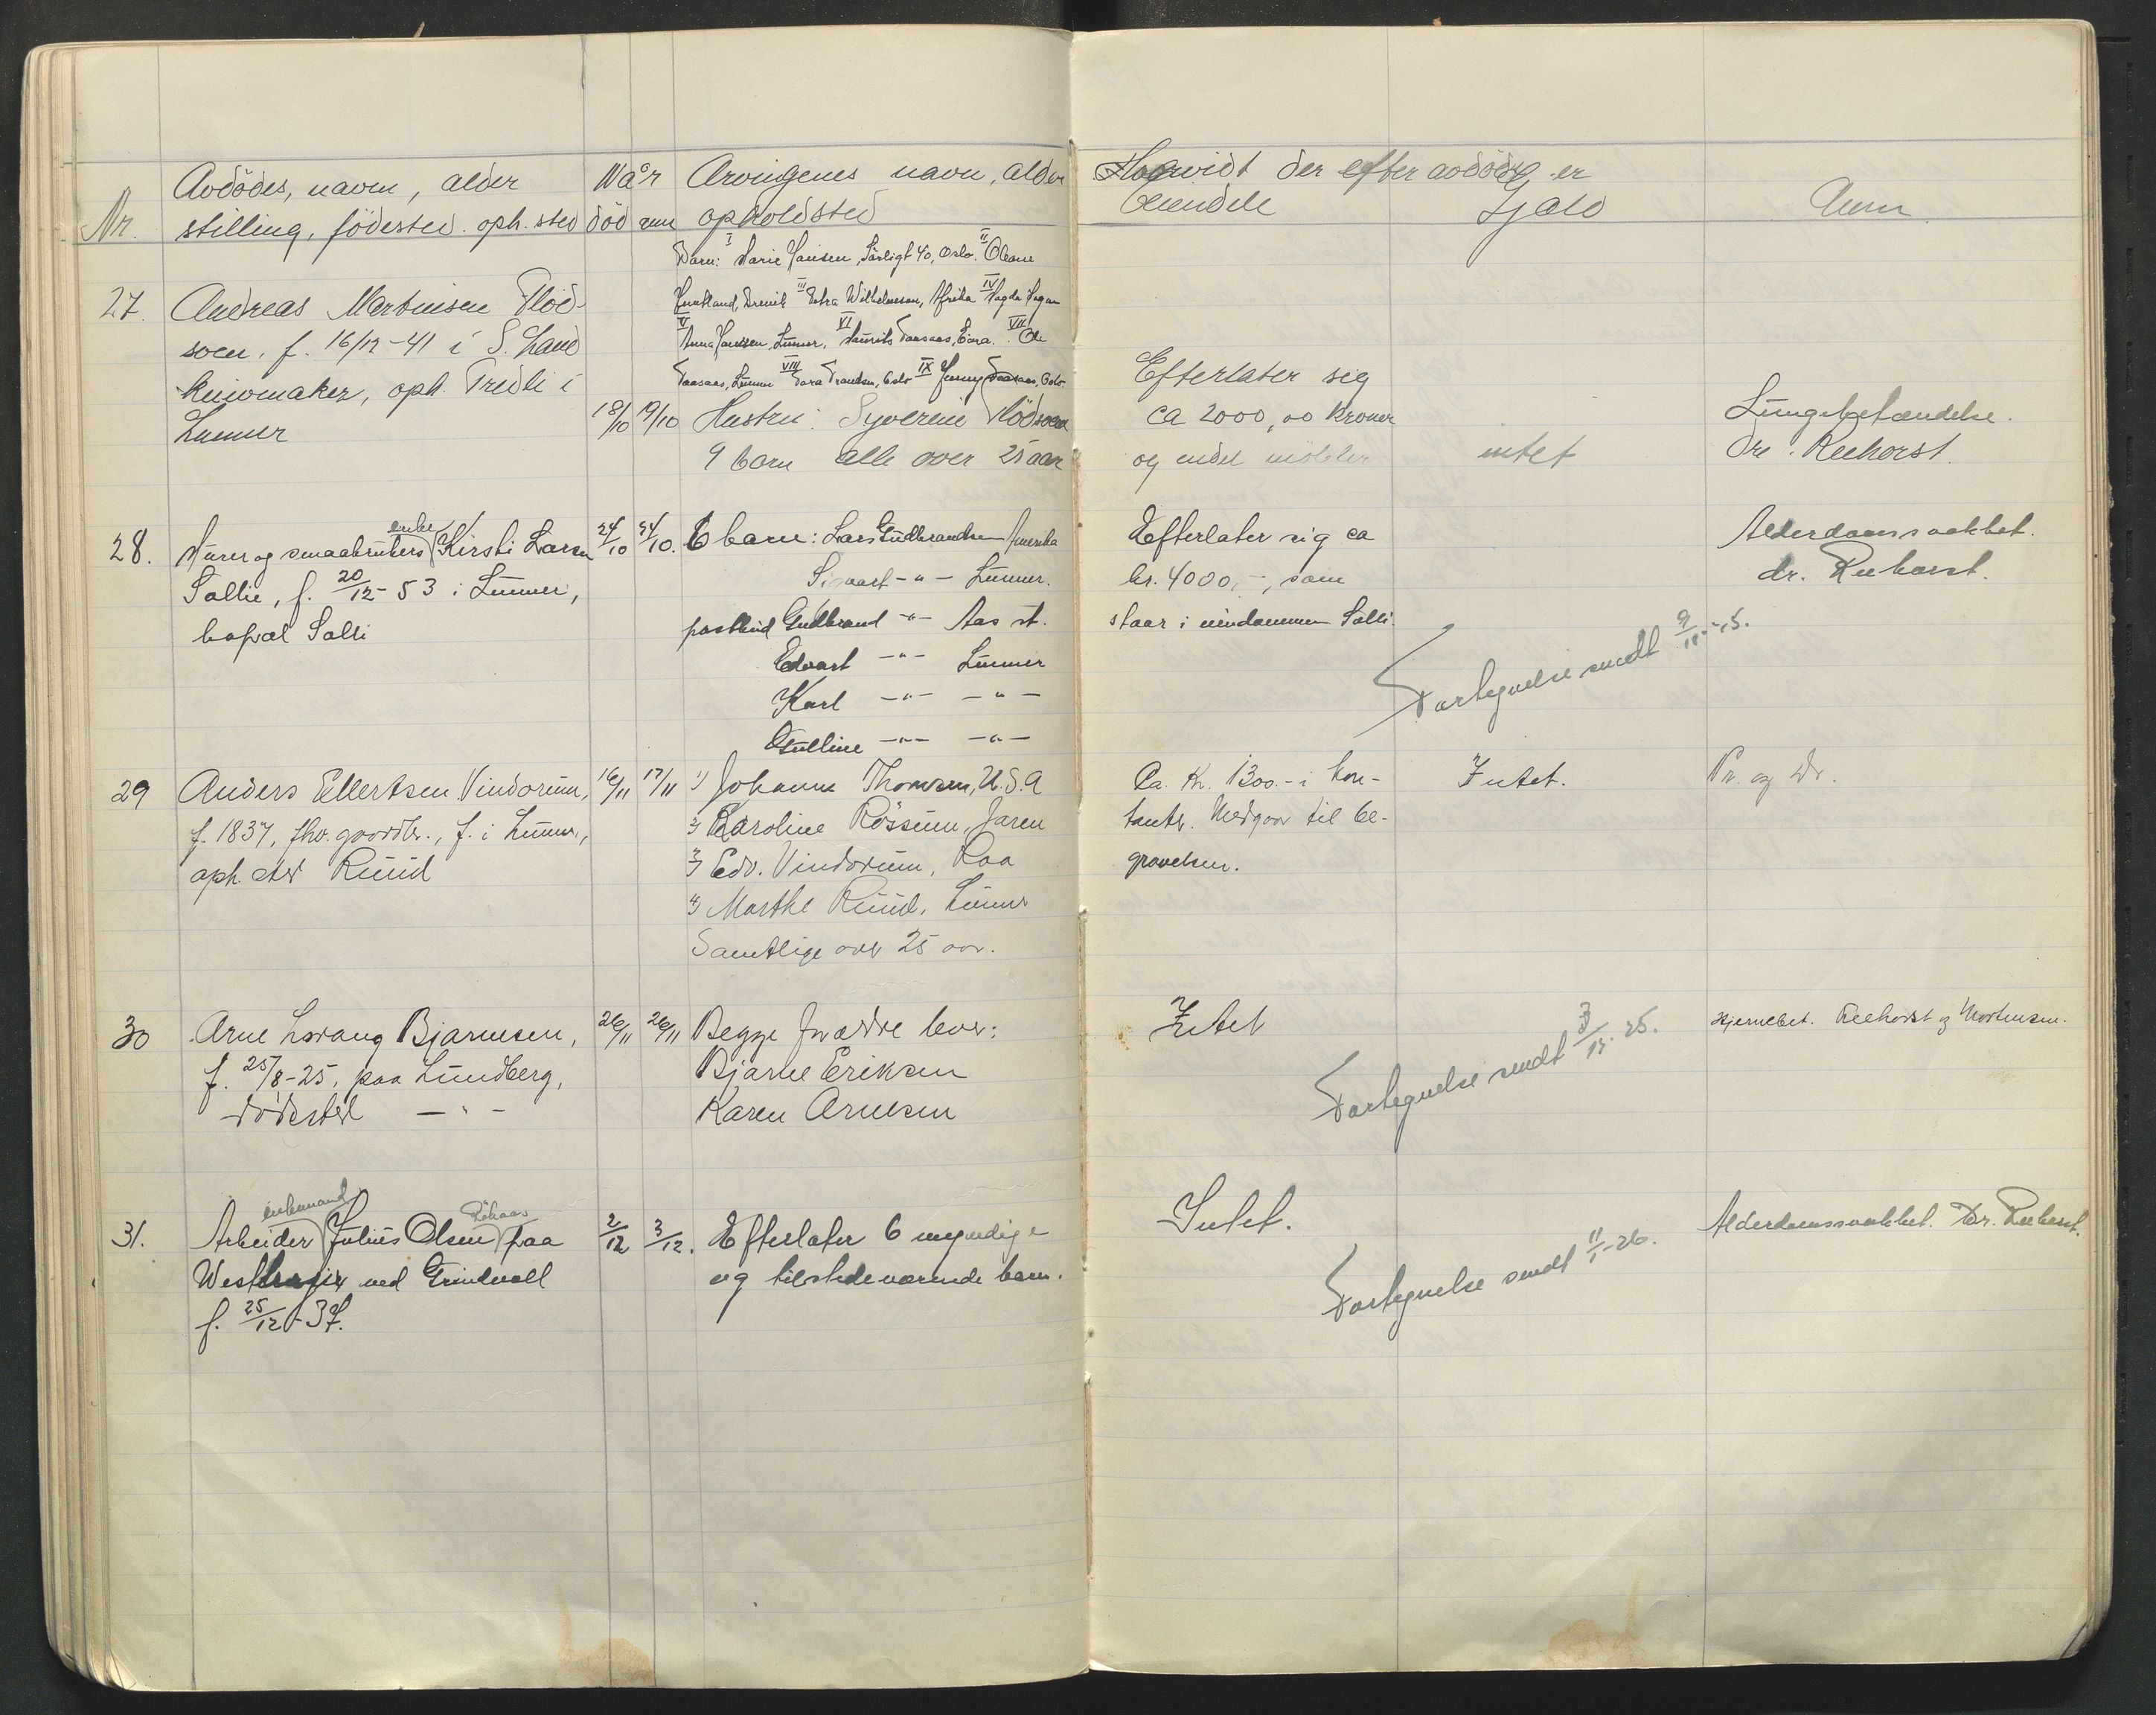 Nr.
Avdödes, navn, alder
stilling, födested. oph. sted
Når
död
anm
Arvingenes navn, alder
opholdsted
Hvorvidt der efter avdöde er
Eiendele
Gjæld
Anm.
27.
Andreas Martinsen Flöd-
soen. f. 16/12-41 i S. Land
knivmaker, oph. Tredli i
Lunner
18/10
19/10
Barn: I Marie Hansen, 40, Oslo. II Oleane
III Petra Wilhelmsen, Afrika IV Magda Hagen
V Anna Hansen, Lunner, VI Laurits Taasaas, VII Ole
Taasaas, Lunner VIII Dora Trandsen, Oslo IX Jenny Oslo
Hustru: Syverine Flödsoen
9 barn alle over 25 aar
Efterlater sig
ca 2000,00 kroner
og endel möbler
intet
Lungebetændelse.
Dr. Reehorst.
28.
Murer og smaabrukers enke Kirsti Larsen
Sollie, f. 20/12-53 i Lunner,
bopæl Solli
24/10
24/10.
6 barn: Lars Gudbrandsen Amerika
Sivart -"- Lunner.
postbud Gudbrand -"- Aas st.
Edvart -"- Lunner
Karl -"- -"-
Gulline -"- -"-
Efterlater sig ca
kr. 4000,-, som
staar i eiendommen Solli.
Fortegnelse sendt
Alderdomssvakhet.
dr. Reehorst.
29
Anders Ellertsen Vindorum,
f. 1837, fhv. gaardbr., f. i Lunner,
oph. sted Ruud
16/11
17/11
1) Johanne Thomsen, U.S.A
2) Karoline Rössum, Jaren
3) Edv. Vindorum, Roa
4) Marthe Ruud, Lunner
Samtlige over 25 aar.
Ca. Kr. 1300.- i kon-
tanter. Medgaar til be-
gravelsen.
Intet.
30
Arne Lorang Bjarnesen,
f. 25/8-25, paa Lundberg,
dödssted -"-
26/11
26/11
Begge foreldre lever:
Bjarne Eriksen
Karen Arnesen
Intet
Fortegnelse sendt 3/12.25.
Hjernebet. Reehorst og Mortensen.
31.
Arbeider enkemand Julius Olsen paa
ved Grindvoll
f. 25/12-37.
2/12
3/12.
Efterlater 6 myndige
og tilstedeværende barn.
Intet.
Fortegnelse sendt 11/1-26.
Alderdomssvakhet. Dr. Reehorst.